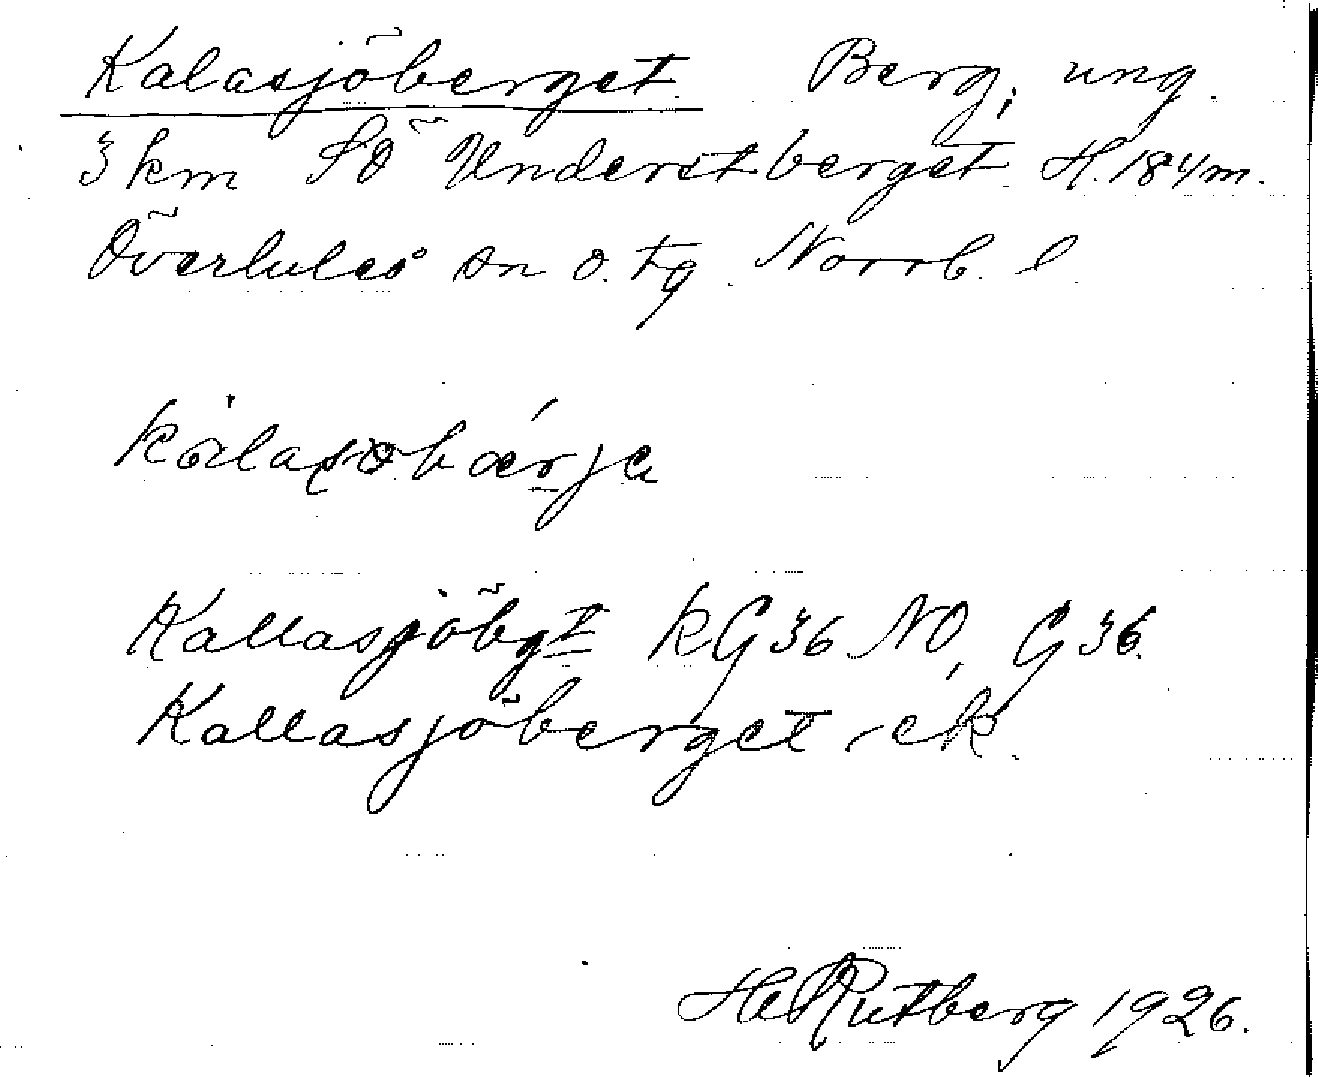 Kalasjöberget. Berg, ung.
3 km SÖ Understberget. H. 184 m.
Överluleå sn o. tg. Norrb. l
Kallasjöbgt KG36 NO, G36.
Kallasjöberget, ek.
He Rutberg 1926.